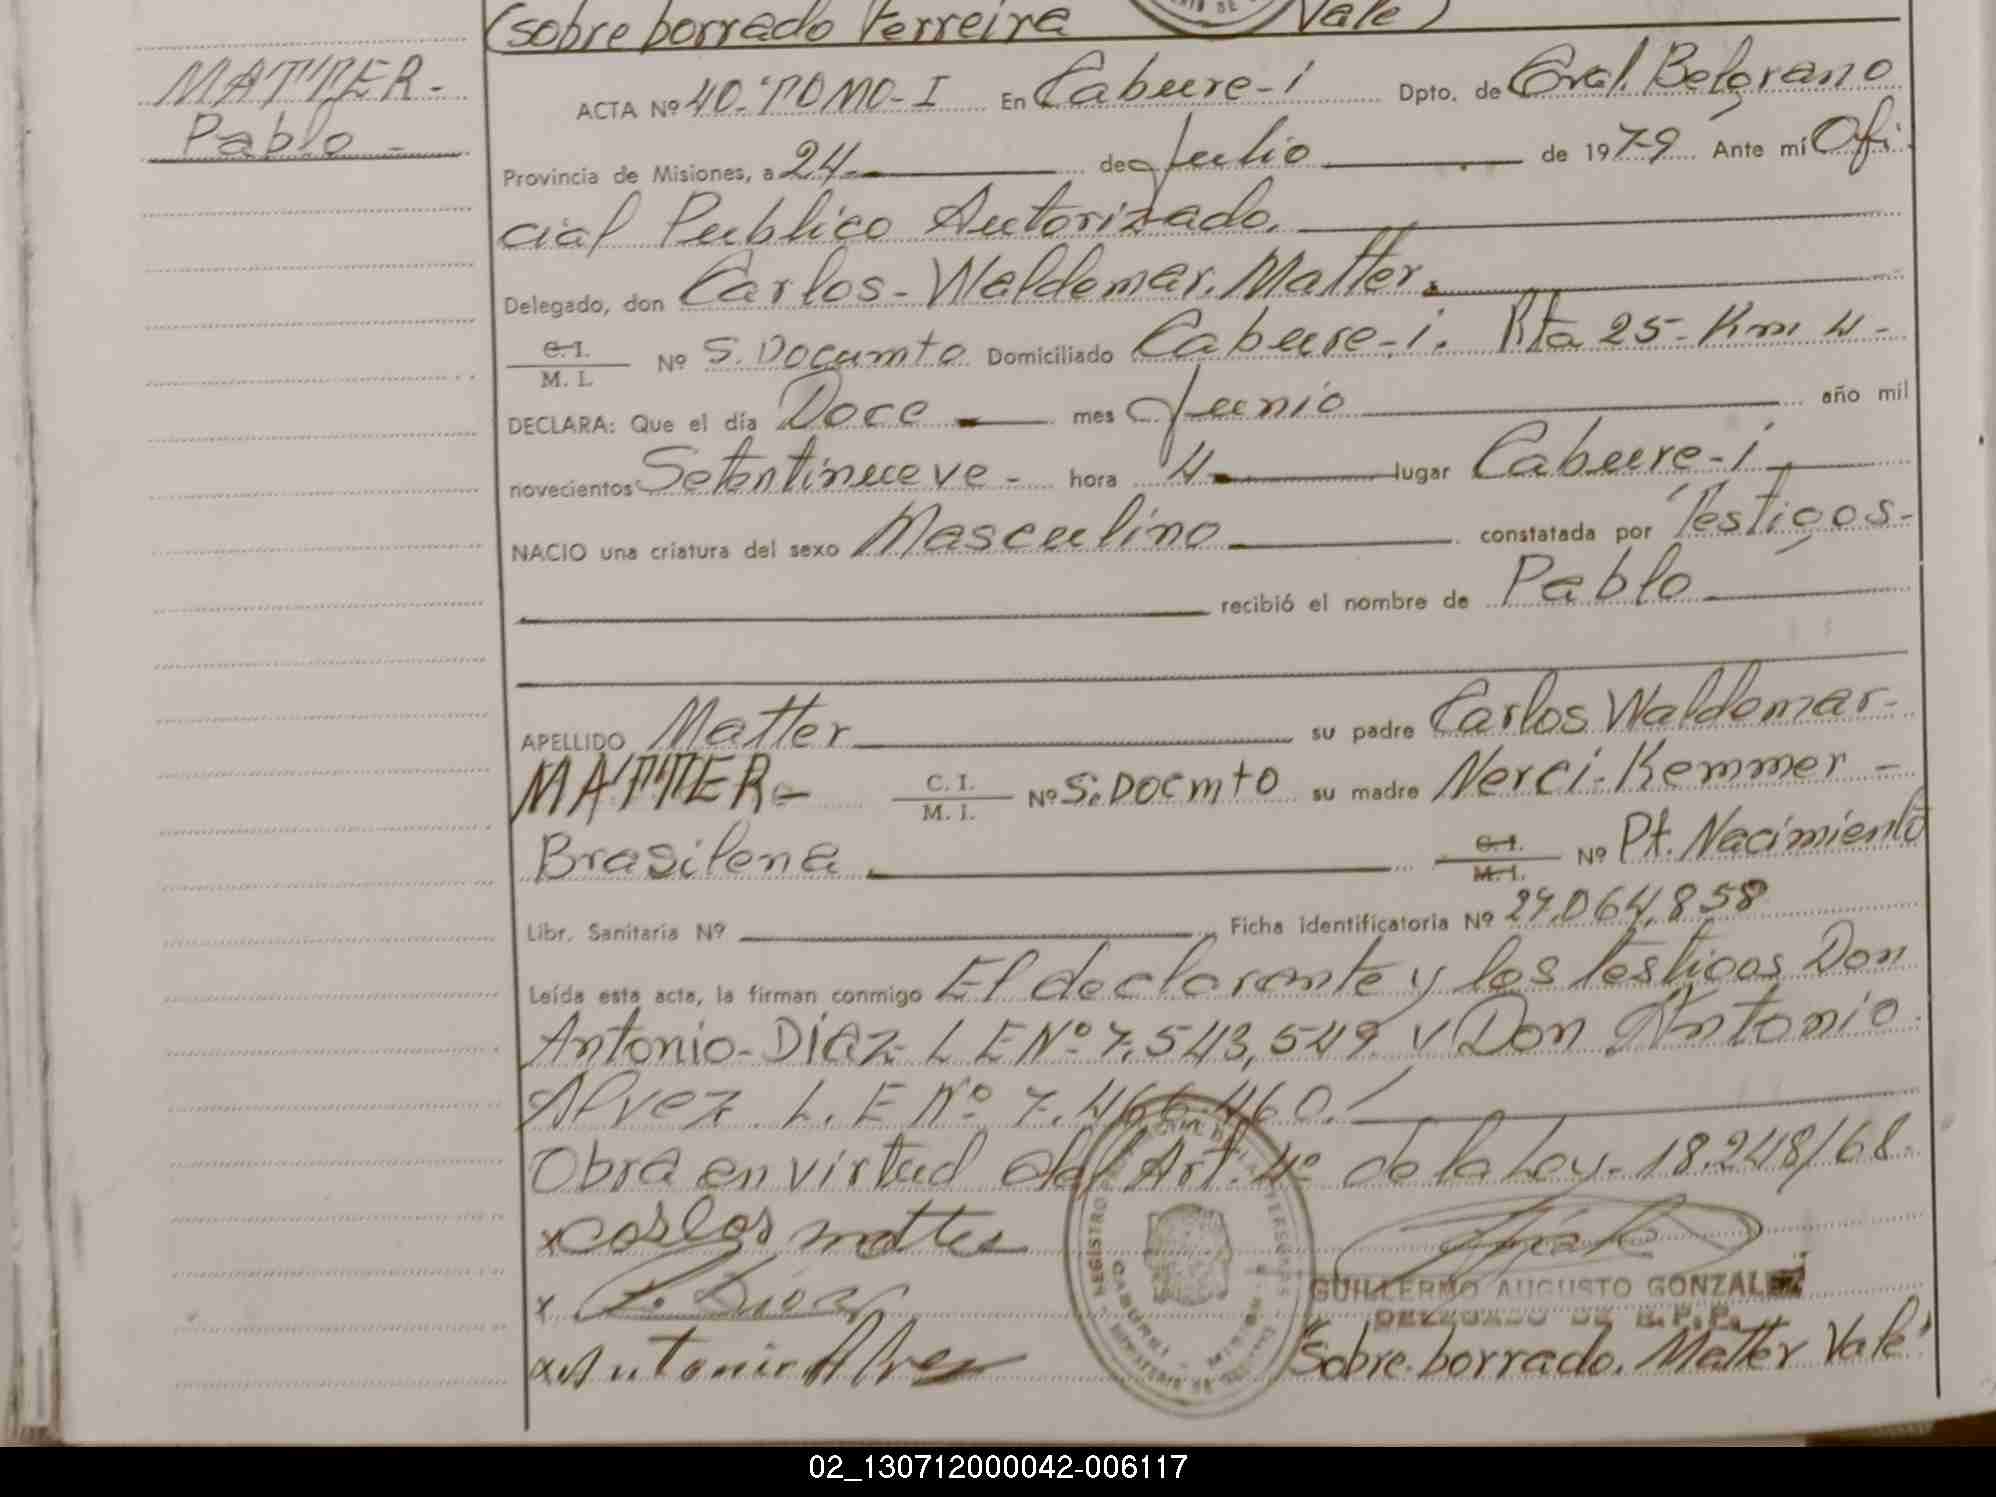 (sobre borrado Ferreira Vale)
MATTER-
Pablo-
ACTA Nº 40-TOMO-I En Cabure-i Dpto. de Gral. Belgrano
Provincia de Misiones, a 24 de Julio de 1979 Ante mí Ofi
cial Publico Autorizado.
Delegado, don Carlos-Waldemar. Matter.
C.I.
M. I. Nº S. Documto Domiciliado Cabure-i. Rta 25-Km 4-
DECLARA: Que el día Doce mes Junio año mil
novecientos Setentinueve- hora 4 lugar Cabure-i
NACIO una criatura del sexo Masculino constatada por Testigos-
recibió el nombre de Pablo
APELLIDO Matter su padre Carlos Waldemar-
MATTER- C. I.
M. I. Nº S. DOCMTO su madre Nerci-Kemmer-
Brasilena C.I.
M.I. Nº Pt. Nacimiento
Libr. Sanitaria Nº Ficha identificatoria Nº 27.064.858
Leída esta acta, la firman conmigo El declarante y los testigos Don
Antonio-Díaz L E Nº 7.543,549 y Don Antonio
Alvez L. E Nº 7.466.460.
Obra en virtud del Art. 4º de la Ley-18.248/68.
x carlos matter
x Diaz
x Antonio Alvez
GUILLERMO AUGUSTO GONZALEZ
DELEGADO DE R.P.P.
"Sobre-borrado. Matter Vale"
02_130712000042-006117